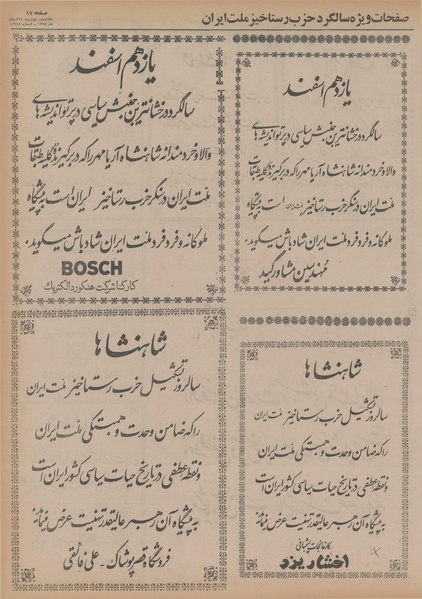 صفحات ویژه سالگرد حزب رستاخیز ملت ایران
صفحه ۱۷
یازدهم اسفند
سالگرد درخشانترین جنبش سیاسی در پرتو اندیشه‌های
والا و خردمندانه شاهنشاه آریامهر را که در برگیرنده کلیه طبقات
ملت ایران در سنگر حزب رستاخیز ملت ایران است به پیشگاه
ملوکانه و فرد فرد ملت ایران شادباش میگوید.
مهندسین مشاور گید
یازدهم اسفند
سالگرد درخشانترین جنبش سیاسی در پرتو اندیشه‌های
والا و خردمندانه شاهنشاه آریامهر را که در برگیرنده کلیه طبقات
ملت ایران در سنگر حزب رستاخیز ایران است به پیشگاه
ملوکانه و فرد فرد ملت ایران شادباش میگوید.
BOSCH
کارکنان شرکت هنکورد الکتریک
شاهنشاها
سالروز تشکیل حزب رستاخیز ملت ایران
را که ضامن وحدت و همبستگی ملت ایران
و نقطه عطفی در تاریخ حیات سیاسی کشور ایران است
به پیشگاه آن رهبر عالیقدر تهنیت عرض مینماید
کارخانجات پشمبافی
افشار یزد
شاهنشاها
سالروز تشکیل حزب رستاخیز ملت ایران
را که ضامن وحدت و همبستگی ملت ایران
و نقطه عطفی در تاریخ حیات سیاسی کشور ایران است
به پیشگاه آن رهبر عالیقدر تهنیت عرض مینماید
فروشگاه قصر پوشاک - علی فائقی